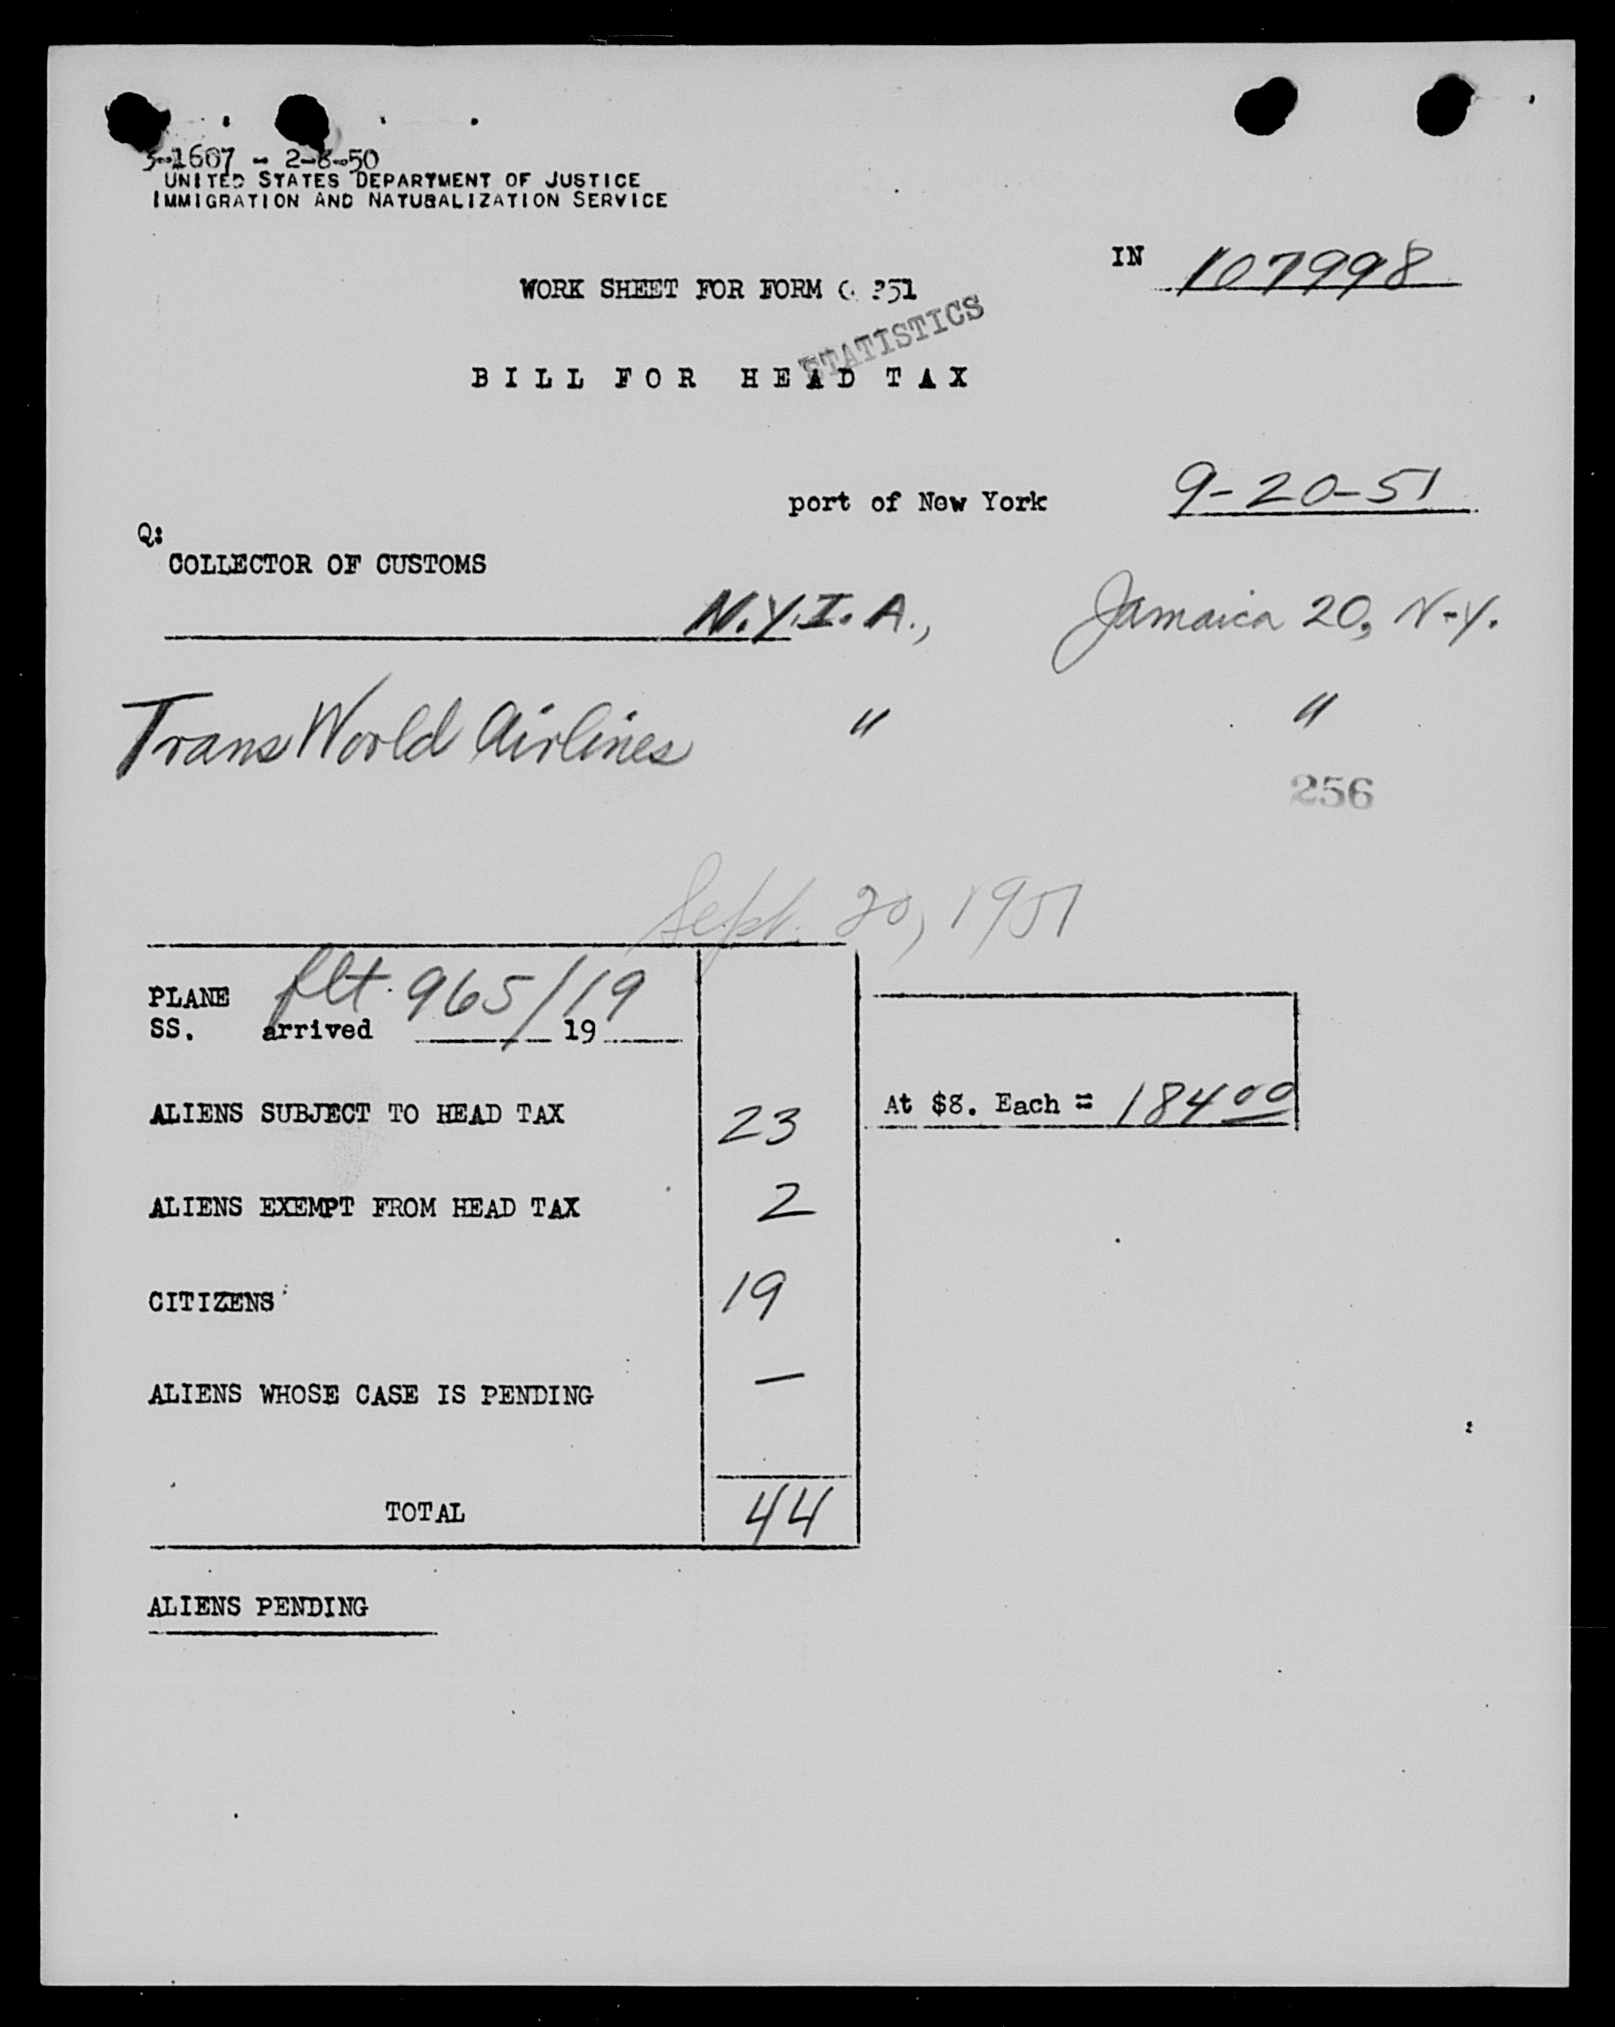 3-1607 - 2-8-50
UNITED STATES DEPARTMENT OF JUSTICE
IMMIGRATION AND NATURALIZATION SERVICE
IN 107998
WORK SHEET FOR FORM 351
STATISTICS
BILL FOR HEAD TAX
port of New York 9-20-51
Q:
COLLECTOR OF CUSTOMS
N.Y.I.A., Jamaica 20, N-Y.
Trans World Airlines " "
256
Sept. 20, 1951
PLANE flt. 965/19
SS. arrived 19
ALIENS SUBJECT TO HEAD TAX 23 At $8. Each = 184 00
ALIENS EXEMPT FROM HEAD TAX 2
CITIZENS 19
ALIENS WHOSE CASE IS PENDING —
TOTAL 44
ALIENS PENDING